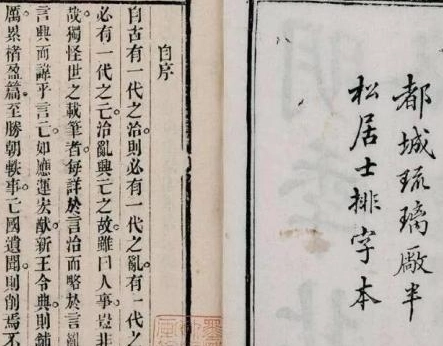 都城琉璃廠半
松居士排字本
自序
自古有一代之治則必有一代之亂。有一代
必有一代之亡。治亂興亡之故。雖曰人事。豈非
哉。獨怪世之載筆者。每詳於言治而略於言亂
言興而諱乎言亡。如應運宏猷。新王令典。則鋪
厲累楮盈篇。至勝朝軼事。亡國遺聞。則削焉不